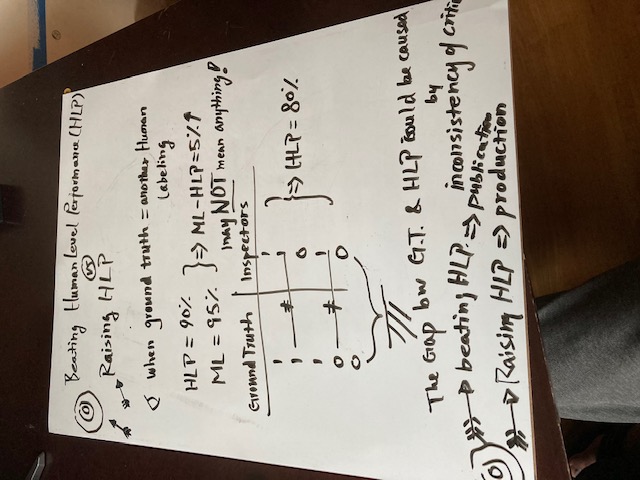 Beating Human Level Performance (HLP)
VS
Raising HLP
when ground truth = another Human
Labeling
HLP = 90%
ML = 95%
} => ML-HLP = 5% ↑
may NOT mean anything!
Ground Truth | Inspectors
1 1
1 ≠ 0
1 1
0 ≠ 1
0 0
} => HLP = 80%
The Gap bw G.T. & HLP could be caused
by
inconsistency of
beating HLP => publication
Raising HLP => production